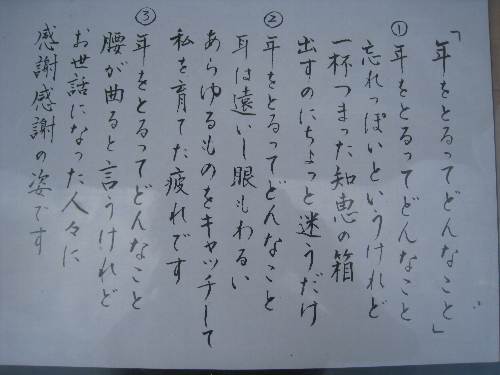 「年をとるってどんなこと」
① 年をとるってどんなこと
忘れっぽいというけれど
一杯つまった知恵の箱
出すのにちょっと迷うだけ
② 年をとるってどんなこと
耳は遠いし眼もわるい
あらゆるものをキャッチして
私を育てた疲れです
③ 年をとるってどんなこと
腰が曲ると言うけれど
お世話になった人々に
感謝感謝の姿です